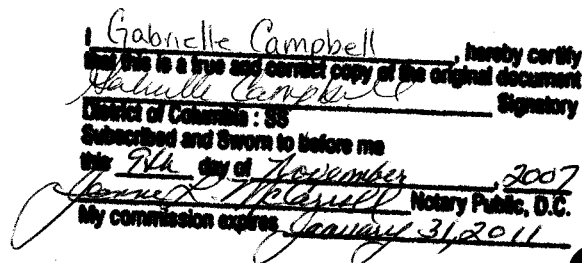 I Gabrielle Campbell, hereby certify
that this is a true and correct copy of the original document
Gabrielle Campbell Signatory
District of Columbia : SS
Subscribed and Sworn to before me
this 9th day of November, 2007
Jeanne L. McCarroll Notary Public, D.C.
My commission expires January 31, 2011